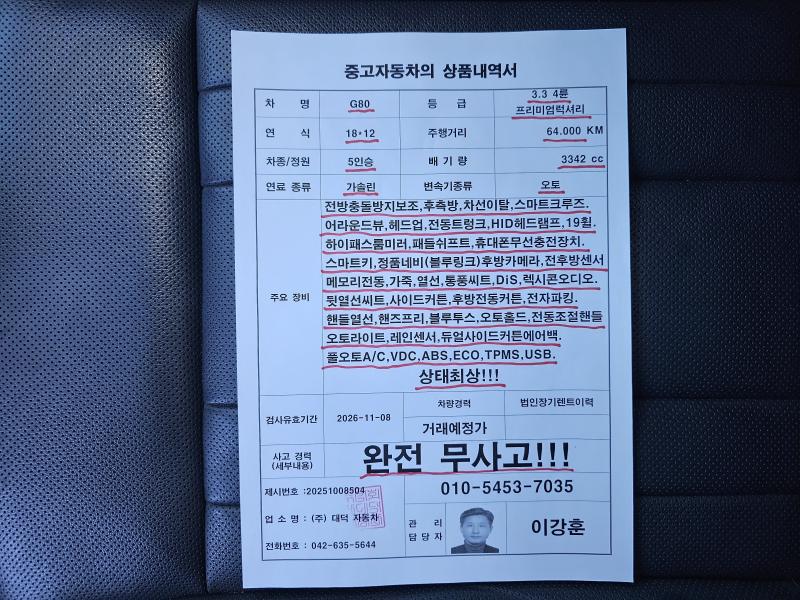 중고자동차의 상품내역서
차 명 G80 등 급 3.3 4륜
프리미엄럭셔리
연 식 18*12 주행거리 64.000 KM
차종/정원 5인승 배 기 량 3342 cc
연료 종류 가솔린 변속기종류 오토
주요 장비
전방충돌방지보조,후측방,차선이탈,스마트크루즈.
어라운드뷰,헤드업,전동트렁크,HID헤드램프,19휠.
하이패스룸미러,패들쉬프트,휴대폰무선충전장치.
스마트키,정품네비(블루링크)후방카메라,전후방센서
메모리전동,가죽,열선,통풍씨트,DiS,렉시콘오디오.
뒷열선씨트,사이드커튼,후방전동커튼,전자파킹.
핸들열선,핸즈프리,블루투스,오토홀드,전동조절핸들
오토라이트,레인센서,듀얼사이드커튼에어백.
풀오토A/C,VDC,ABS,ECO,TPMS,USB.
상태최상!!!
검사유효기간 2026-11-08 차량경력 법인장기렌트이력
거래예정가
사고 경력
(세부내용)
완전 무사고!!!
제시번호 :20251008504 010-5453-7035
업 소 명 : (주) 대덕 자동차
관 리
담 당 자
이강훈
전화번호 : 042-635-5644